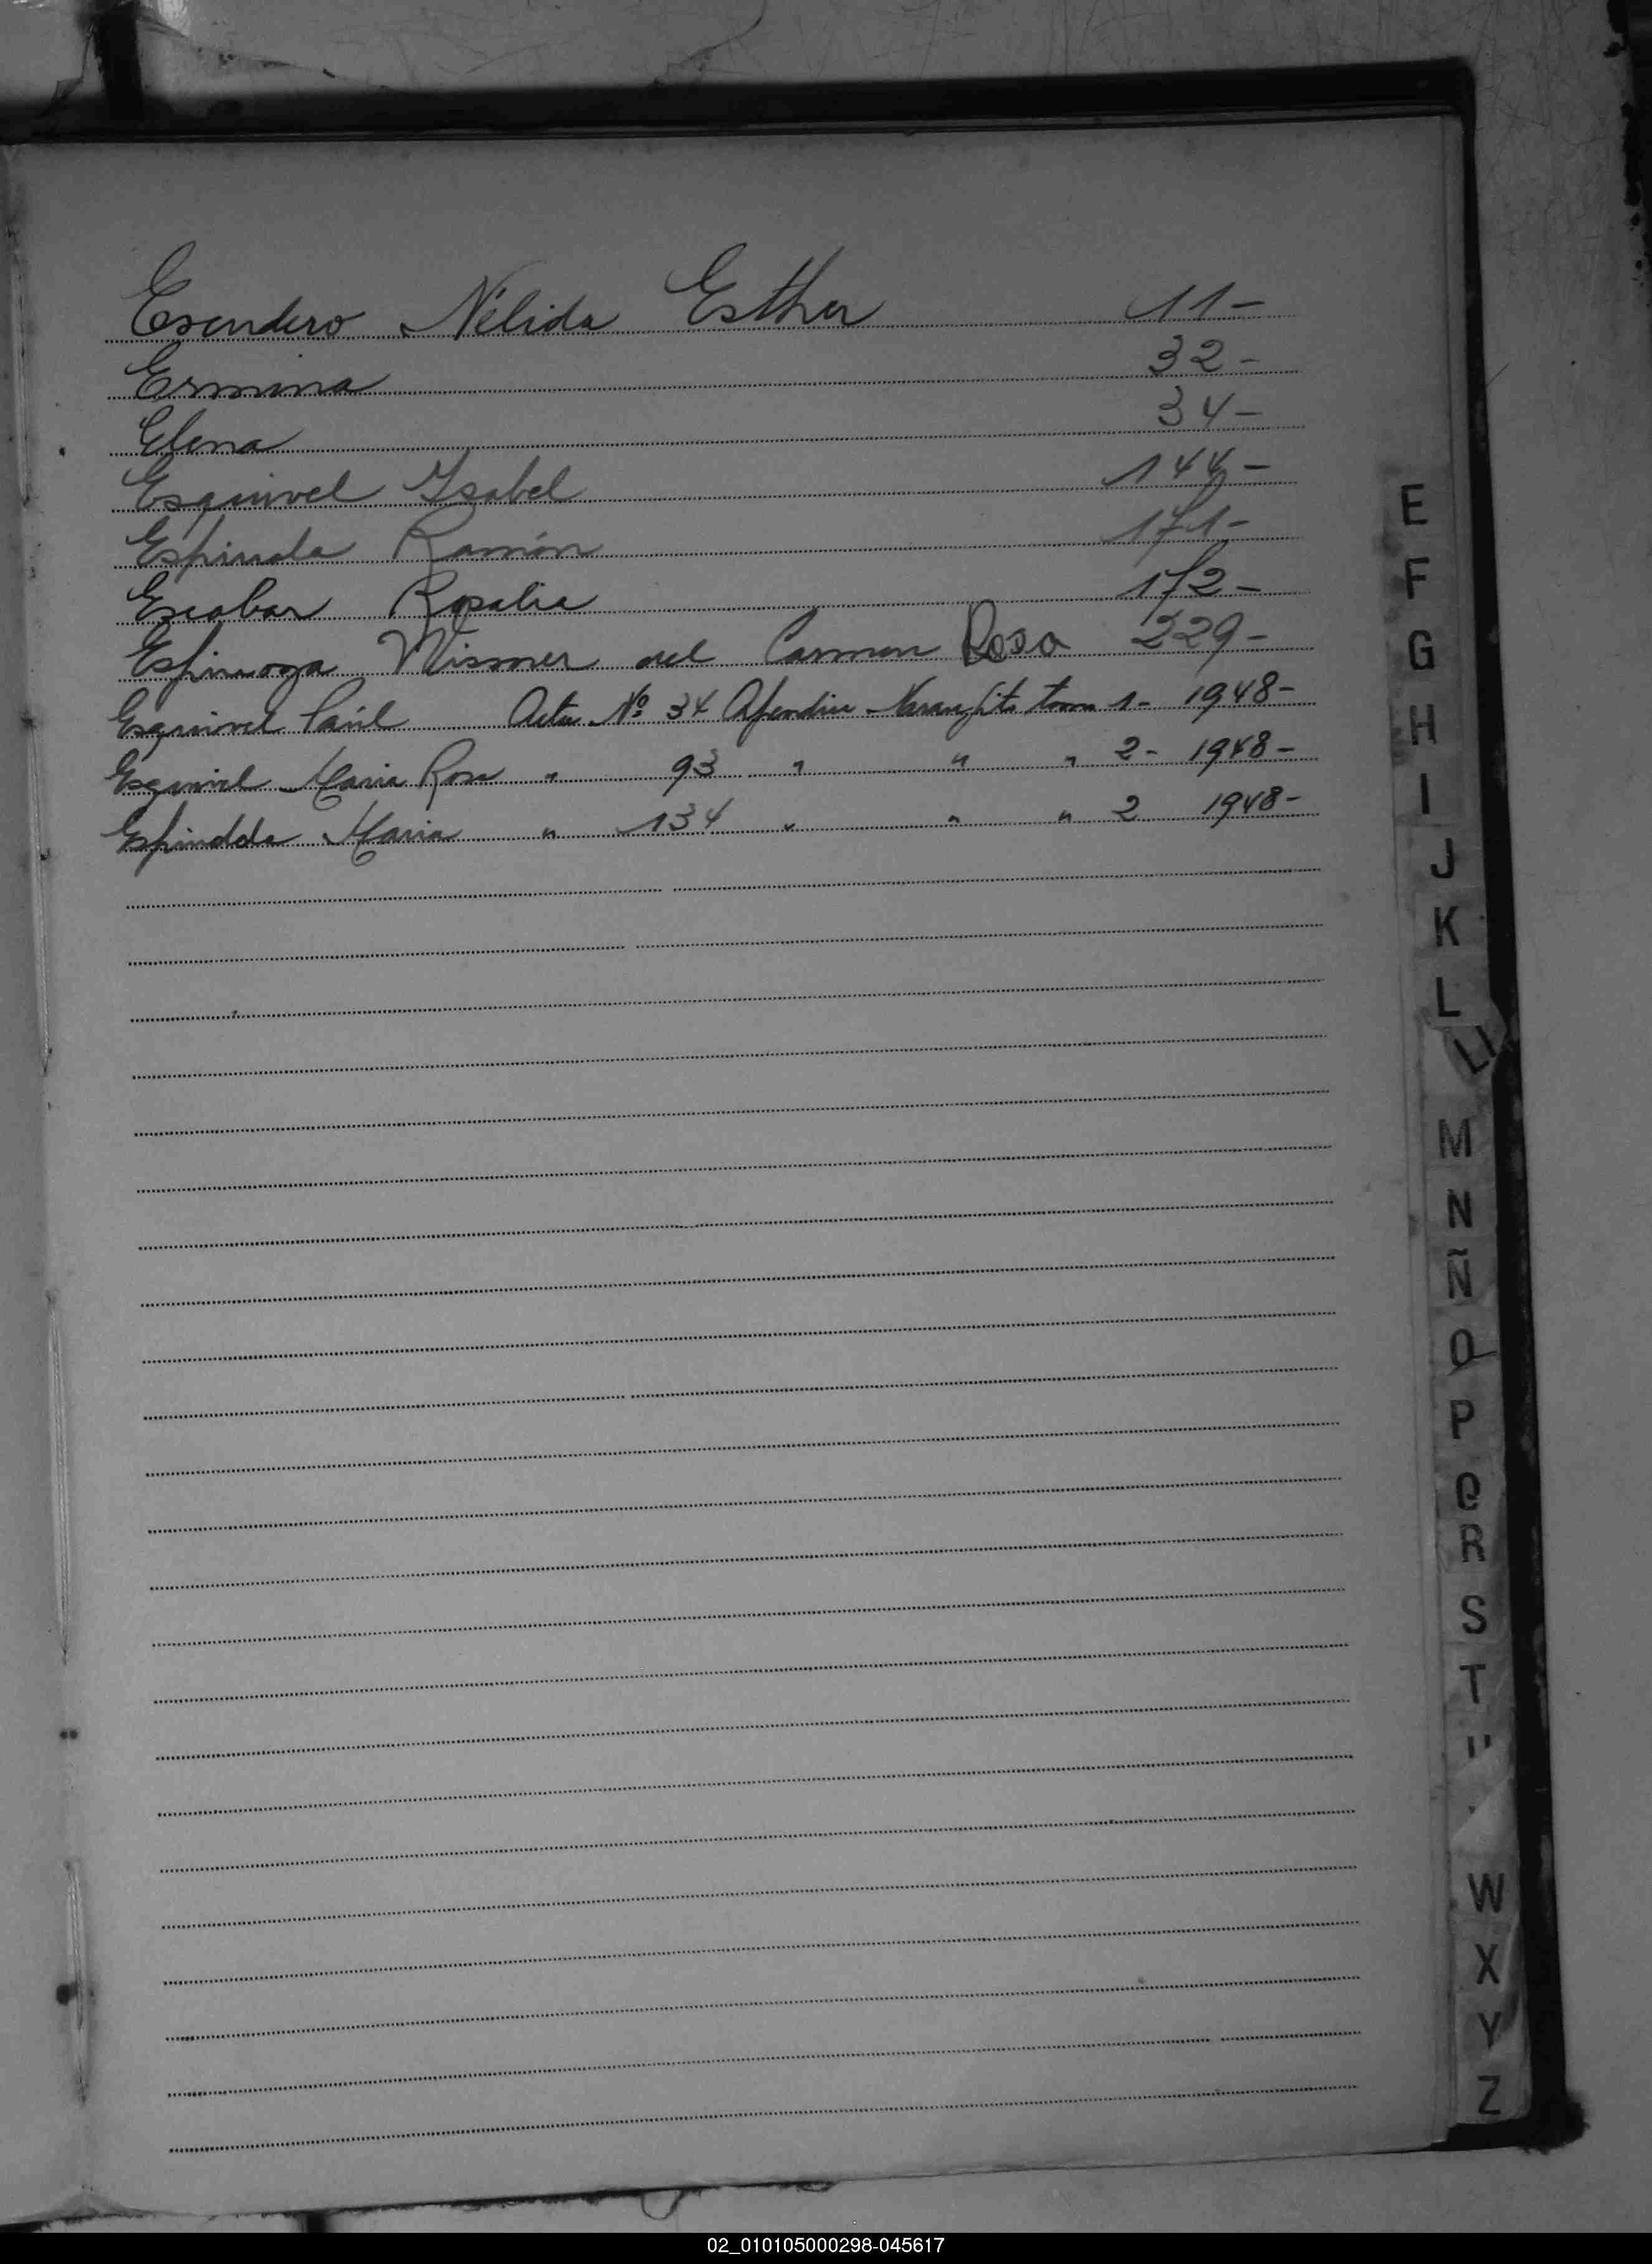 Escudero Nélida Esther 11-
Ermina 32-
Elena 34-
Esquivel Ysabel 144-
Espinda Ramón 171-
Escobar Rosalia 172-
Espinoza Wismer del Carmen Rosa 229-
Esquivel Saúl Acta Nº 34 Apendice Naranjito tomo 1- 1948-
Esquivel Maria Rosa " 93 " " " 2- 1948-
Espindola Maria " 134 " " " 2 1948-
E
F
G
H
I
J
K
L
Ll
M
N
Ñ
O
P
Q
R
S
T
W
X
Y
Z
02_010105000298-045617